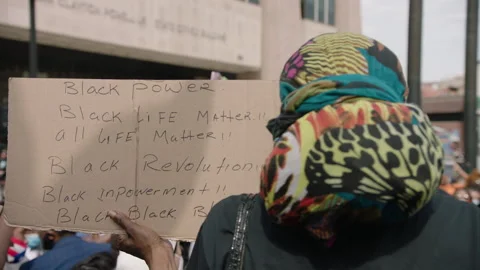 Black Power.
Black LIFE Matter!!
all LIFE Matter!!
Black Revolution
Black Inpowerment!!
Black Black Bl